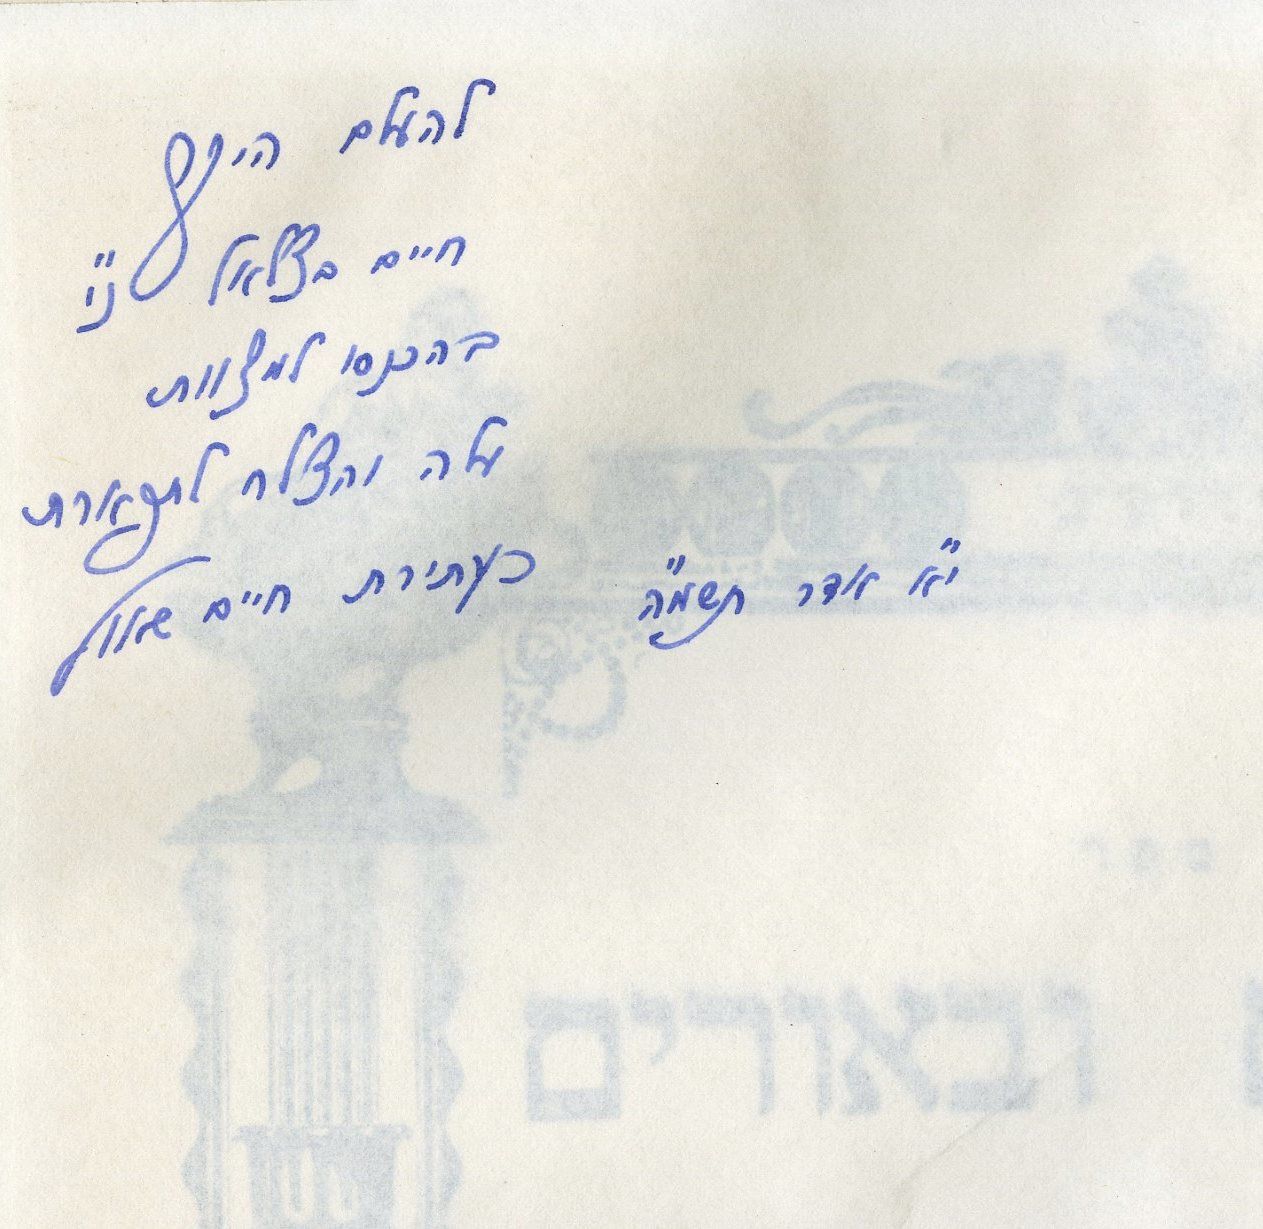 להעלם היקר
חיים בצלאל ני"ו
בהכנסו למצוות
עלה והצלח לתפארת
כעתירת חיים שאול
י"א אדר תשמ"ה
ובאורים